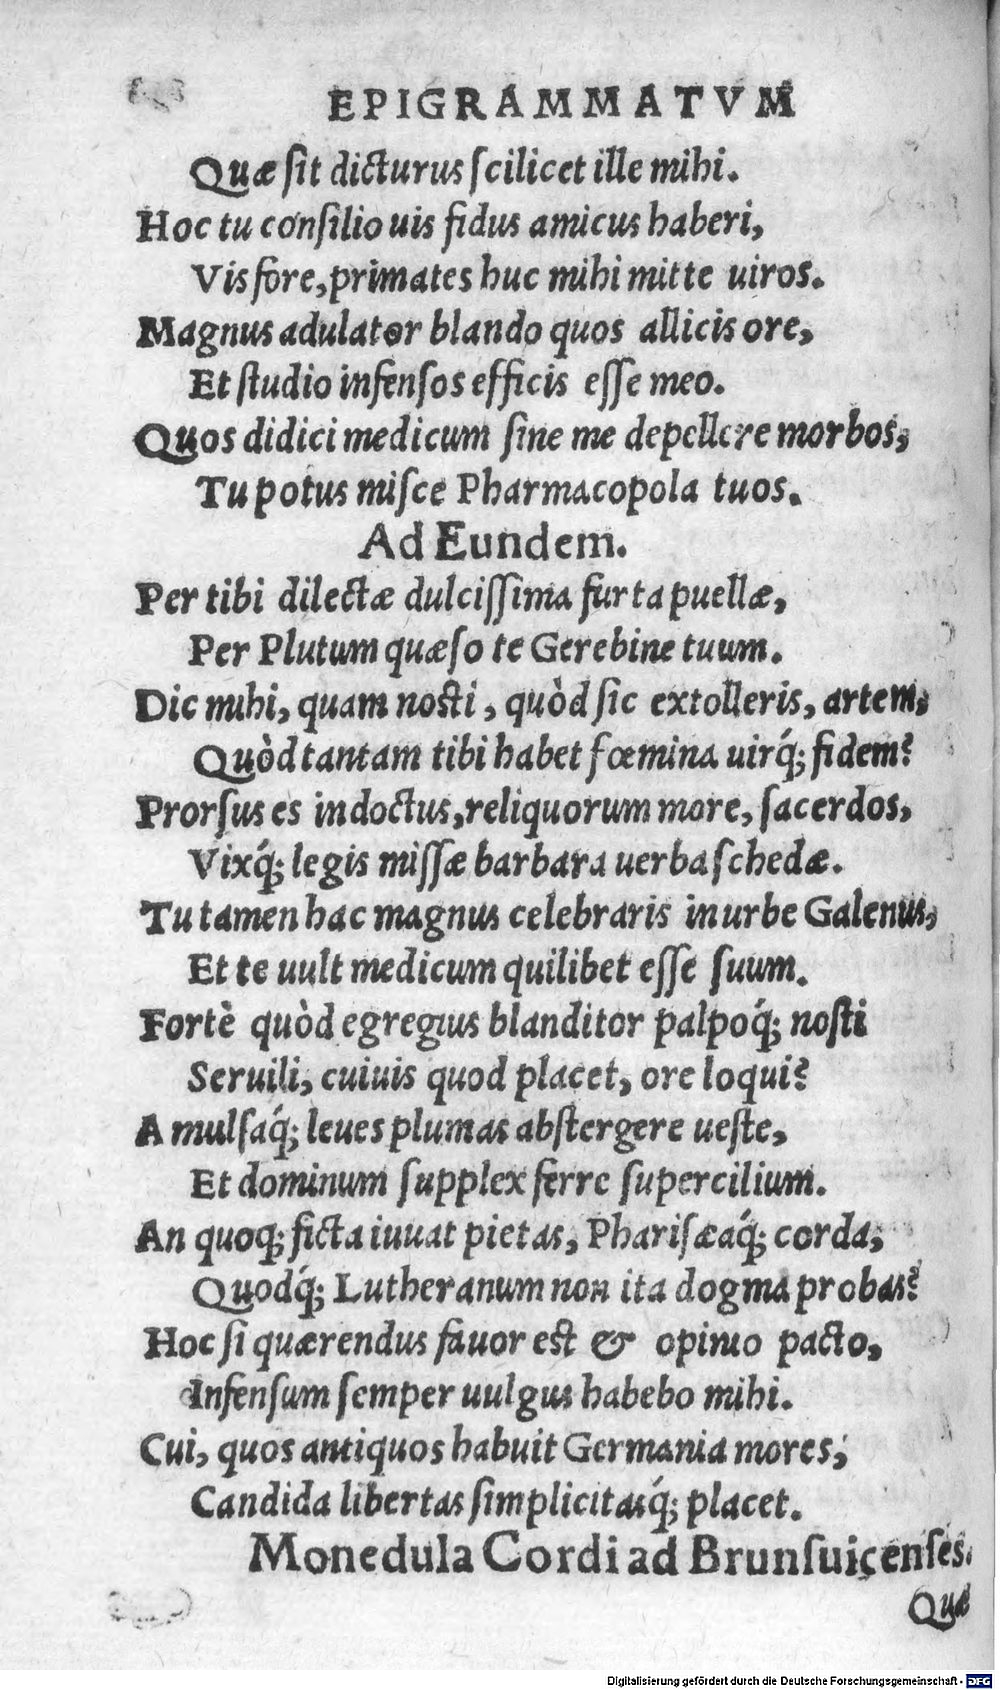 EPIGRAMMATVM
Quæ ſit dicturus ſcilicet ille mihi.
Hoc tu conſilio uis fidus amicus haberi,
Vis fore, primates huc mihi mitte uiros.
Magnus adulator blando quos allicis ore,
Et ſtudio infenſos efficis eſſe meo.
Quos didici medicum ſine me depellere morbos,
Tu potus miſce Pharmacopola tuos.
Ad Eundem.
Per tibi dilectæ dulciſſima furta puellæ,
Per Plutum quæſo te Gerebine tuum.
Dic mihi, quam noſti, quòd ſic extolleris, artem,
Quòd tantam tibi habet fœmina uirq́; fidem?
Prorſus es indoctus, reliquorum more, ſacerdos,
Vixq́; legis miſſæ barbara uerba ſchedæ.
Tu tamen hac magnus celebraris in urbe Galenus,
Et te uult medicum quilibet eſſe ſuum.
Fortè quòd egregius blanditor palpoq́; noſti
Seruili, cuiuis quod placet, ore loqui?
A mulſaq́; leues plumas abſtergere ueſte,
Et dominum ſupplex ferre ſupercilium.
An quoq; ficta iuuat pietas, Phariſæaq́; corda,
Quodq́; Lutheranum non ita dogma probas?
Hoc ſi quærendus fauor eſt & opimo pacto,
Infenſum ſemper uulgus habebo mihi.
Cui, quos antiquos habuit Germania mores,
Candida libertas ſimplicitasq́; placet.
Monedula Cordi ad Brunſuicenſes.
Quæ
Digitalisierung gefördert durch die Deutsche Forschungsgemeinschaft - DFG